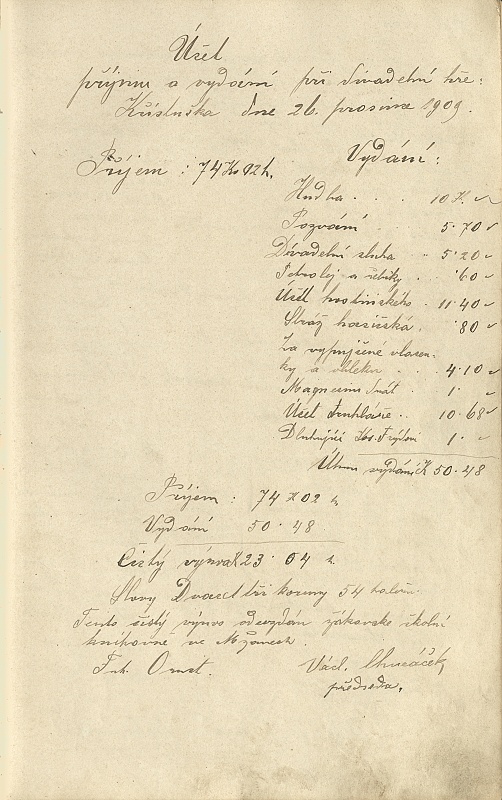 Účet
příjmu a vydání při divadelní hře:
dne 26. prosince 1909.
Příjem : 74 K 02 h.
Vydání:
Hudba . . . 10 K.
Pozvání 5·70
Divadelní sluha . 5·20
Petrolej a . ·60
Účet hostinského . 11·40
Stráž hasičská . ·80
Za vypujčené vlasen-
ky a . . 4·10
Magnesium . 1·
Účet Truhláře . . 10·68
1·
Úhrn vydání K 50·48
Příjem : 74 K 02 h
Vydání 50·48
Čistý výnos K 23·54 h.
Slovy Dvacet tři koruny 54 haléřů.
Tento čistý výnos odevzdán žákovské školní
knihovně ve
Václ.
předseda.